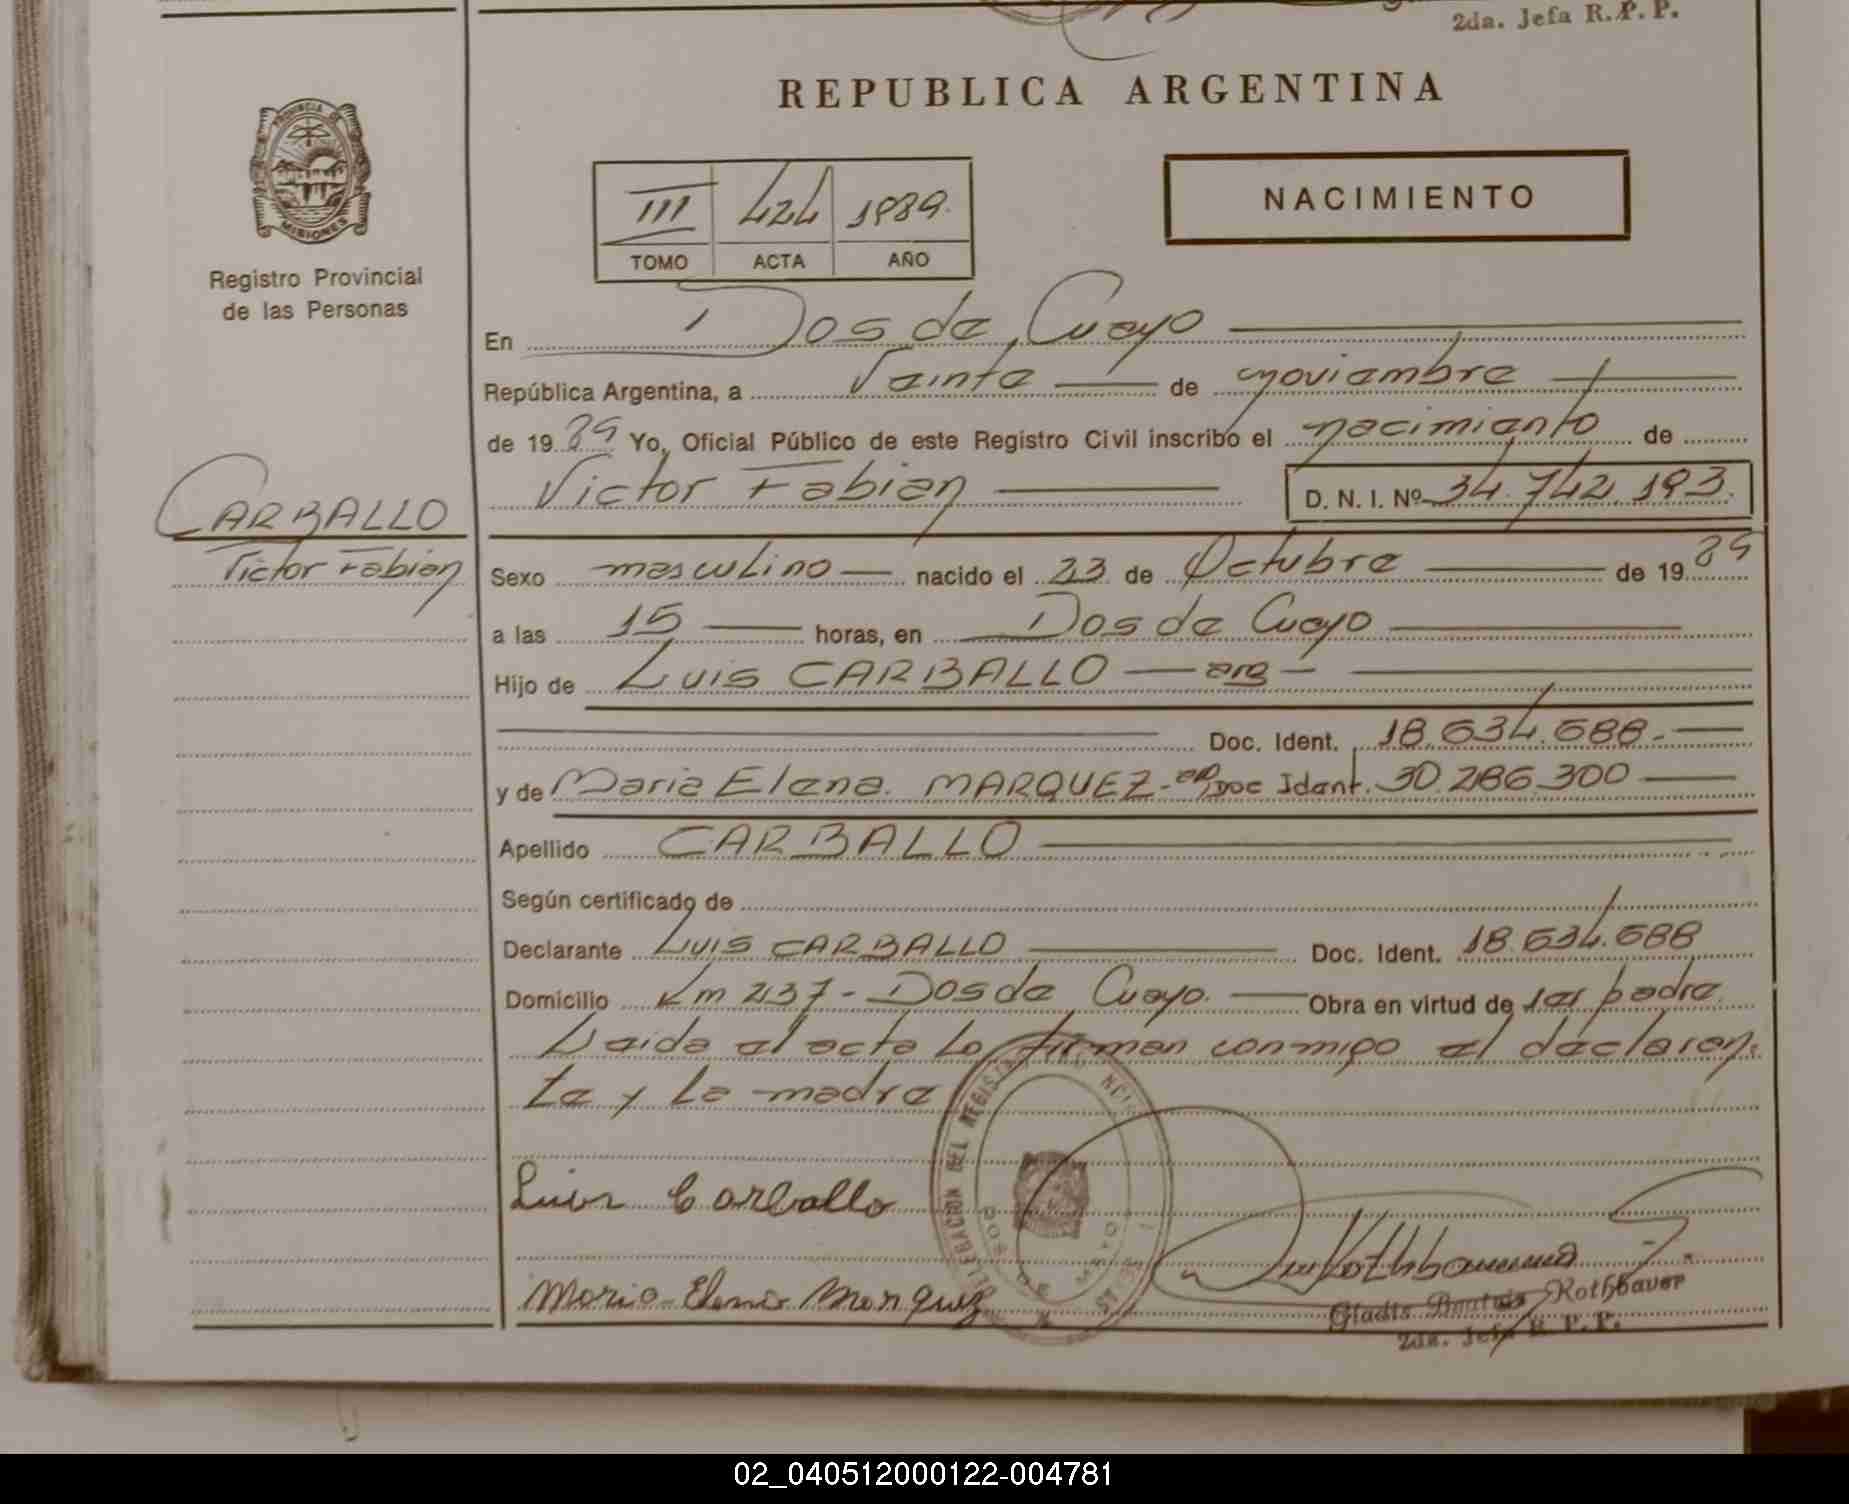 2da. Jefa R.P.P.
REPUBLICA ARGENTINA
PROVINCIA DE
MISIONES
Registro Provincial
de las Personas
III 424 1989.
TOMO ACTA AÑO
NACIMIENTO
En Dos de Cuayo
República Argentina, a Veinte de noviembre
de 1989 Yo, Oficial Público de este Registro Civil inscribo el nacimiento de
Victor Fabian D. N. I. Nº 34.742.193.
CARBALLO
Victor Fabian
Sexo masculino nacido el 23 de Octubre de 1989
a las 15 horas, en Dos de Cuayo
Hijo de Luis CARBALLO — arg —
Doc. Ident. 18.634.688.-
y de Maria Elena. MARQUEZ- Doc Ident. 30.286.300
Apellido CARBALLO
Según certificado de
Declarante Luis CARBALLO Doc. Ident. 18.634.688
Domicilio Km 237 - Dos de Cuayo. Obra en virtud de ser padre
Leida el acta la firman conmigo el declaran-
te y la madre
DELEGACION DEL REGISTRO
DOS DE MAYO
Luis Carballo
Maria Elena Marquez
Rothbauer
2da. Jefa R. P. P.
02_040512000122-004781